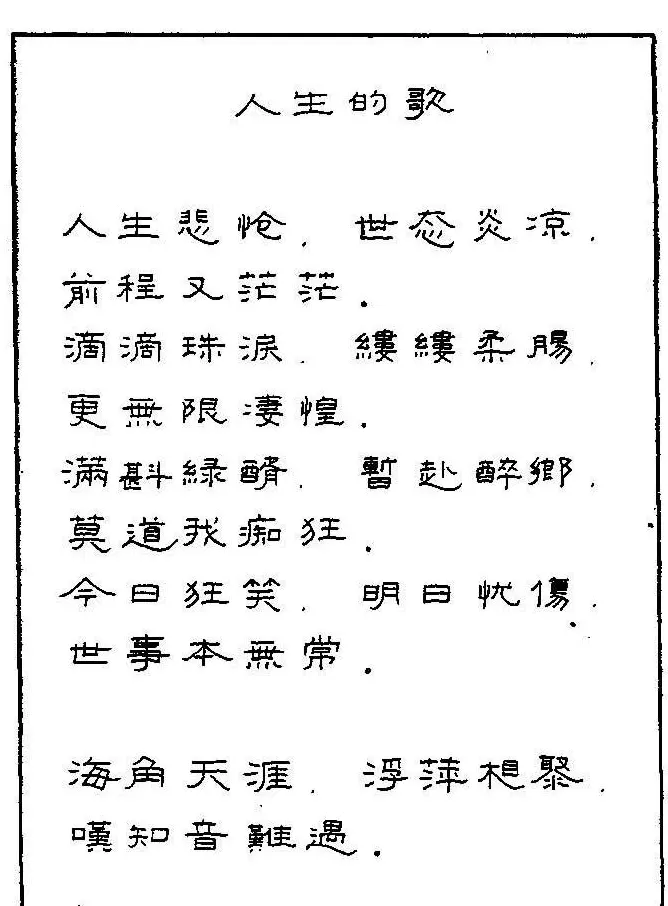 人生的歌
人生悲怆，世态炎凉，
前程又茫茫．
滴滴珠淚，縷縷柔腸，
更無限淒惶．
滿斟綠醑，暫赴醉鄉，
莫道我痴狂．
今日狂笑，明日忧傷，
世事本無常．
海角天涯，浮萍相聚，
嘆知音難遇．